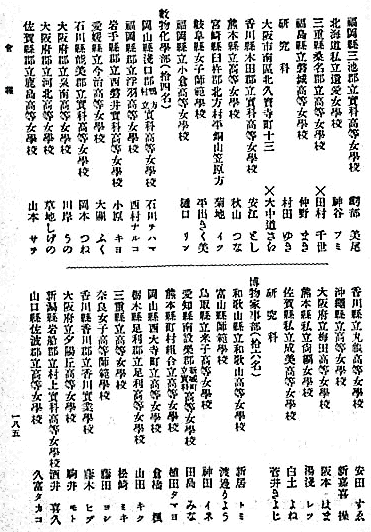 福岡縣三池郡立實科高等女學校 剛部美尾
北海道私立遺愛女學校 神谷フミ
三重縣桑名郡立高等女學校 ×田村千世
福島縣立磐城高等女學校 仲野まき
研究科 村田ゆき
大阪市南區北久寶寺町十三 ×大中道さわ
香川縣木田郡立實科高等女學校 安江とし
熊本縣立高等女學校 秋山つな
宮崎縣臼杵郡北方村平銅山笠原方 菊地イク
岐阜縣女子師範學校 平出きく美
福岡縣立小倉高等女學校 樋口リン
數物化學部(拾四名)
岡山縣淺口郡鴨方町村立實科高等女學校 石川チハマ
福岡縣郡立浮羽高等女學校 西村ナルコ
岩手縣郡立西磐井實科高等女學校 小原キヨ
愛媛縣立今治高等女學校 大關ふく
石川縣能美郡立實科高等女學校 岡本つね
大阪府郡立泉南高等女學校 川岸うの
大阪府郡立河北高等女學校 草地しげの
佐賀縣郡立鹿島高等女學校 山本サチ
會報
香川縣立丸龜高等女學校 安田すゑ
沖繩縣立高等女學校 新嘉喜操
大阪府立梅田高等女學校 阪本はま
熊本縣私立尚絅高等女學校 湯淺レツ
佐賀縣私立成美高等女學校 白土よね
研究科 菅井きよじ
博物家事部(拾六名)
和歌山縣立和歌山高等女學校 新居トミ
富山縣師範學校 渡邊りよう
鳥取縣立米子高等女學校 神田イネ
愛知縣南設樂郡新城町立實科高等女學校 田島みな
熊本縣町村組合立高等女學校 植田タマヨ
岡山縣西大寺町立高等女學校 倉橋榎
栃木縣足利郡立足利高等女學校 山田キク
三重縣立高等女學校 松崎ミキ
奈良女子高等師範學校 藤田ヨシ
香川縣香川郡立香川實業學校 藤木ヒデ
大阪府立夕陽丘高等女學校 駒井モト
新潟縣岩船郡立村上實科高等女學校 酒井喜久
山口縣佐波郡立高等女學校 久富タカコ
一八五